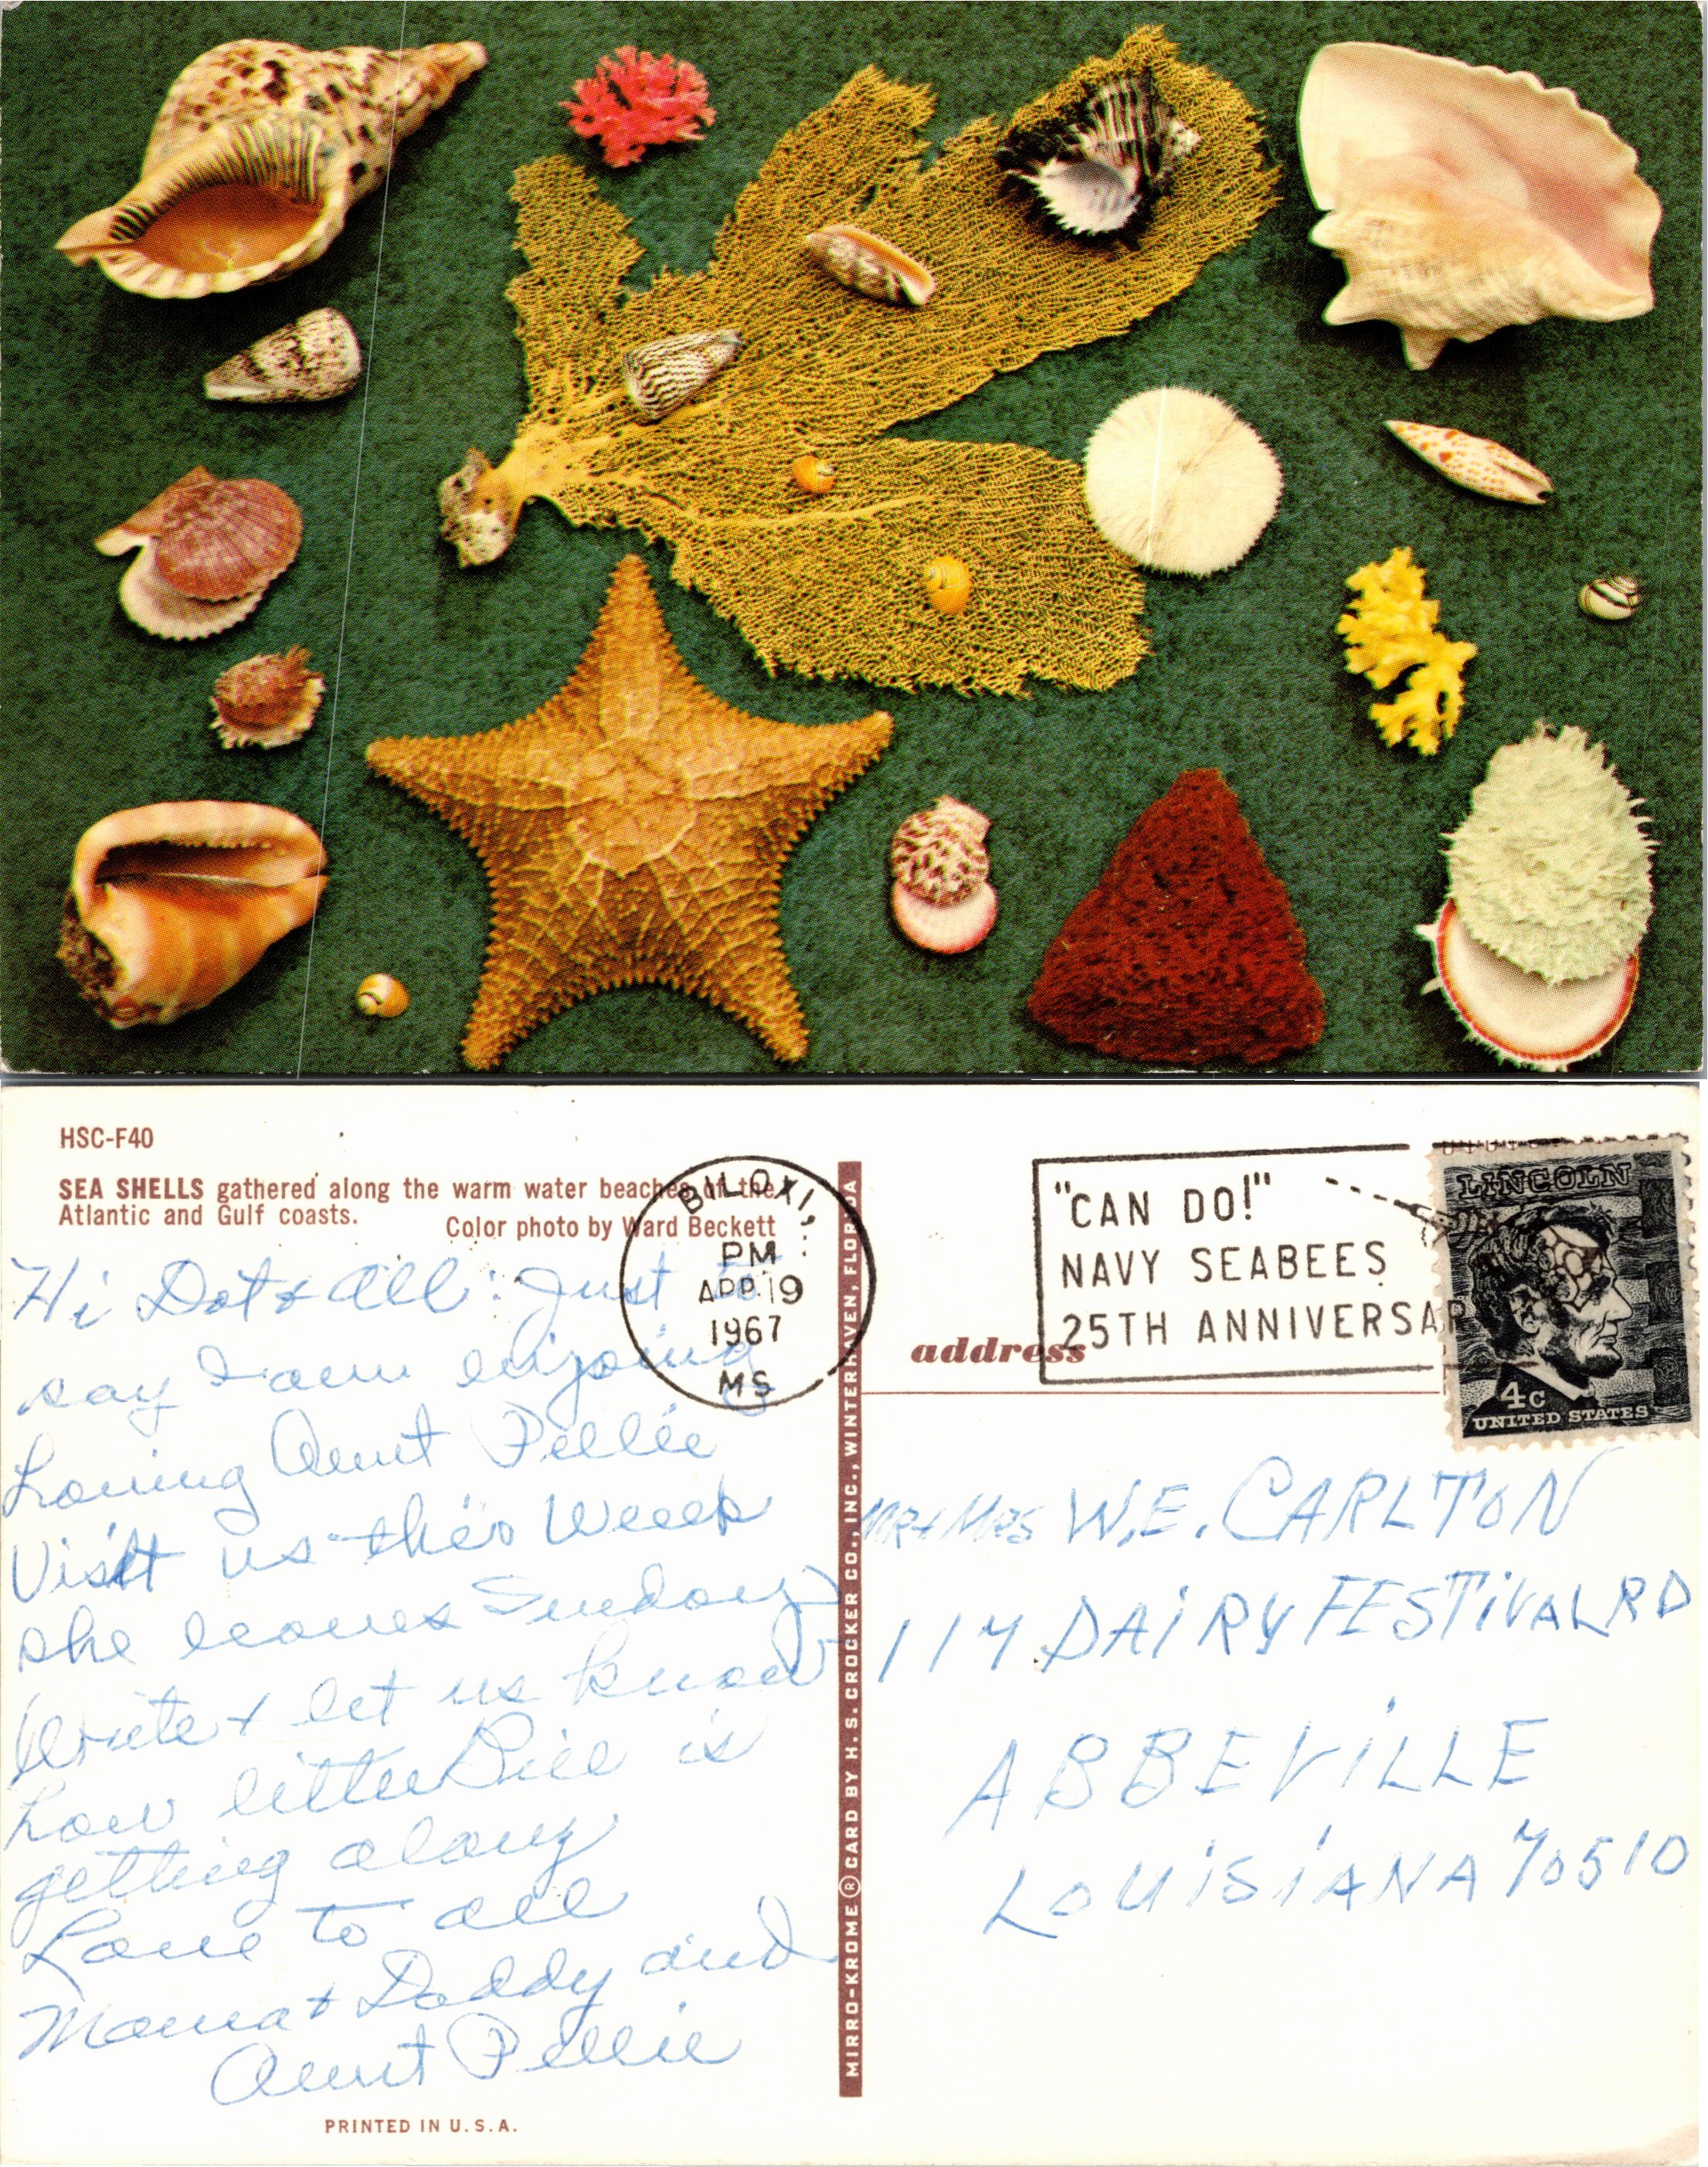 HSC-F40
SEA SHELLS gathered along the warm water beaches of the
Atlantic and Gulf coasts.
Color photo by Ward Beckett
Hi Dot & all: Just to
say I am enjoing
Having Aunt Pellie
Visit us this Week
she leaves Sunday
Write & let us know
how little Bill is
getting along
Love to all
Mama & Daddy and
Aunt Pellie
PRINTED IN U.S.A.
BILOXI,
PM
APR 19
1967
MS
MIRRO-KROME ® CARD BY H. S. CROCKER CO., INC., WINTER HAVEN, FLORIDA
"CAN DO!"
NAVY SEABEES
25TH ANNIVERSAR
LINCOLN
4c
UNITED STATES
address
Mr & Mrs W.E. CARLTON
114 DAIRY FESTIVAL RD
ABBEVILLE
LOUISIANA 70510